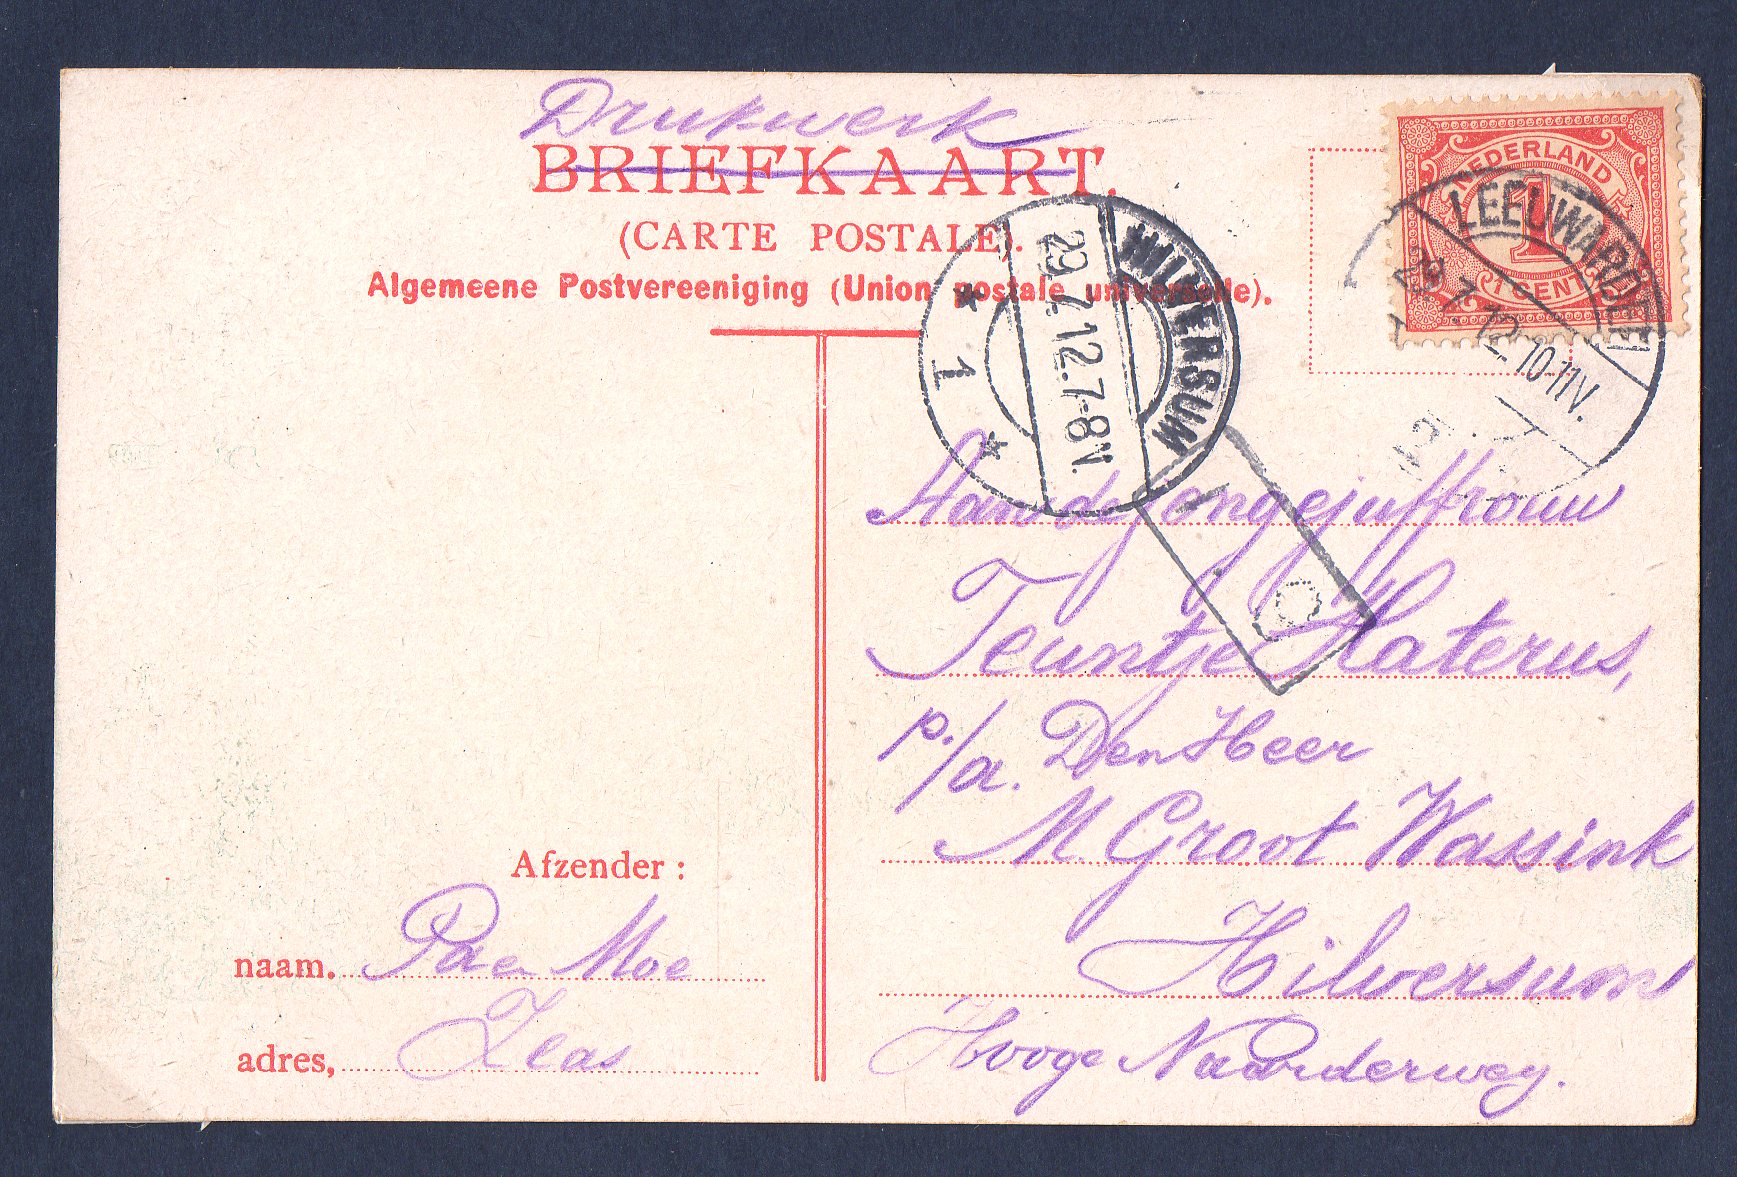 Drukwerk
BRIEFKAART.
(CARTE POSTALE).
Algemeene Postvereeniging (Union postale universelle).
NEDERLAND
1
1 CENT
LEEUWARDEN
29.7.12. 10-11V.
HILVERSUM
29.7.12.7-8V.
1
Aan de jongejuffrouw
Teuntje Katerus,
p./a. Den Heer
M. Groot Wassink
Hilversum
Hooge Naarderweg.
Afzender:
naam. Pa en Moe
adres,